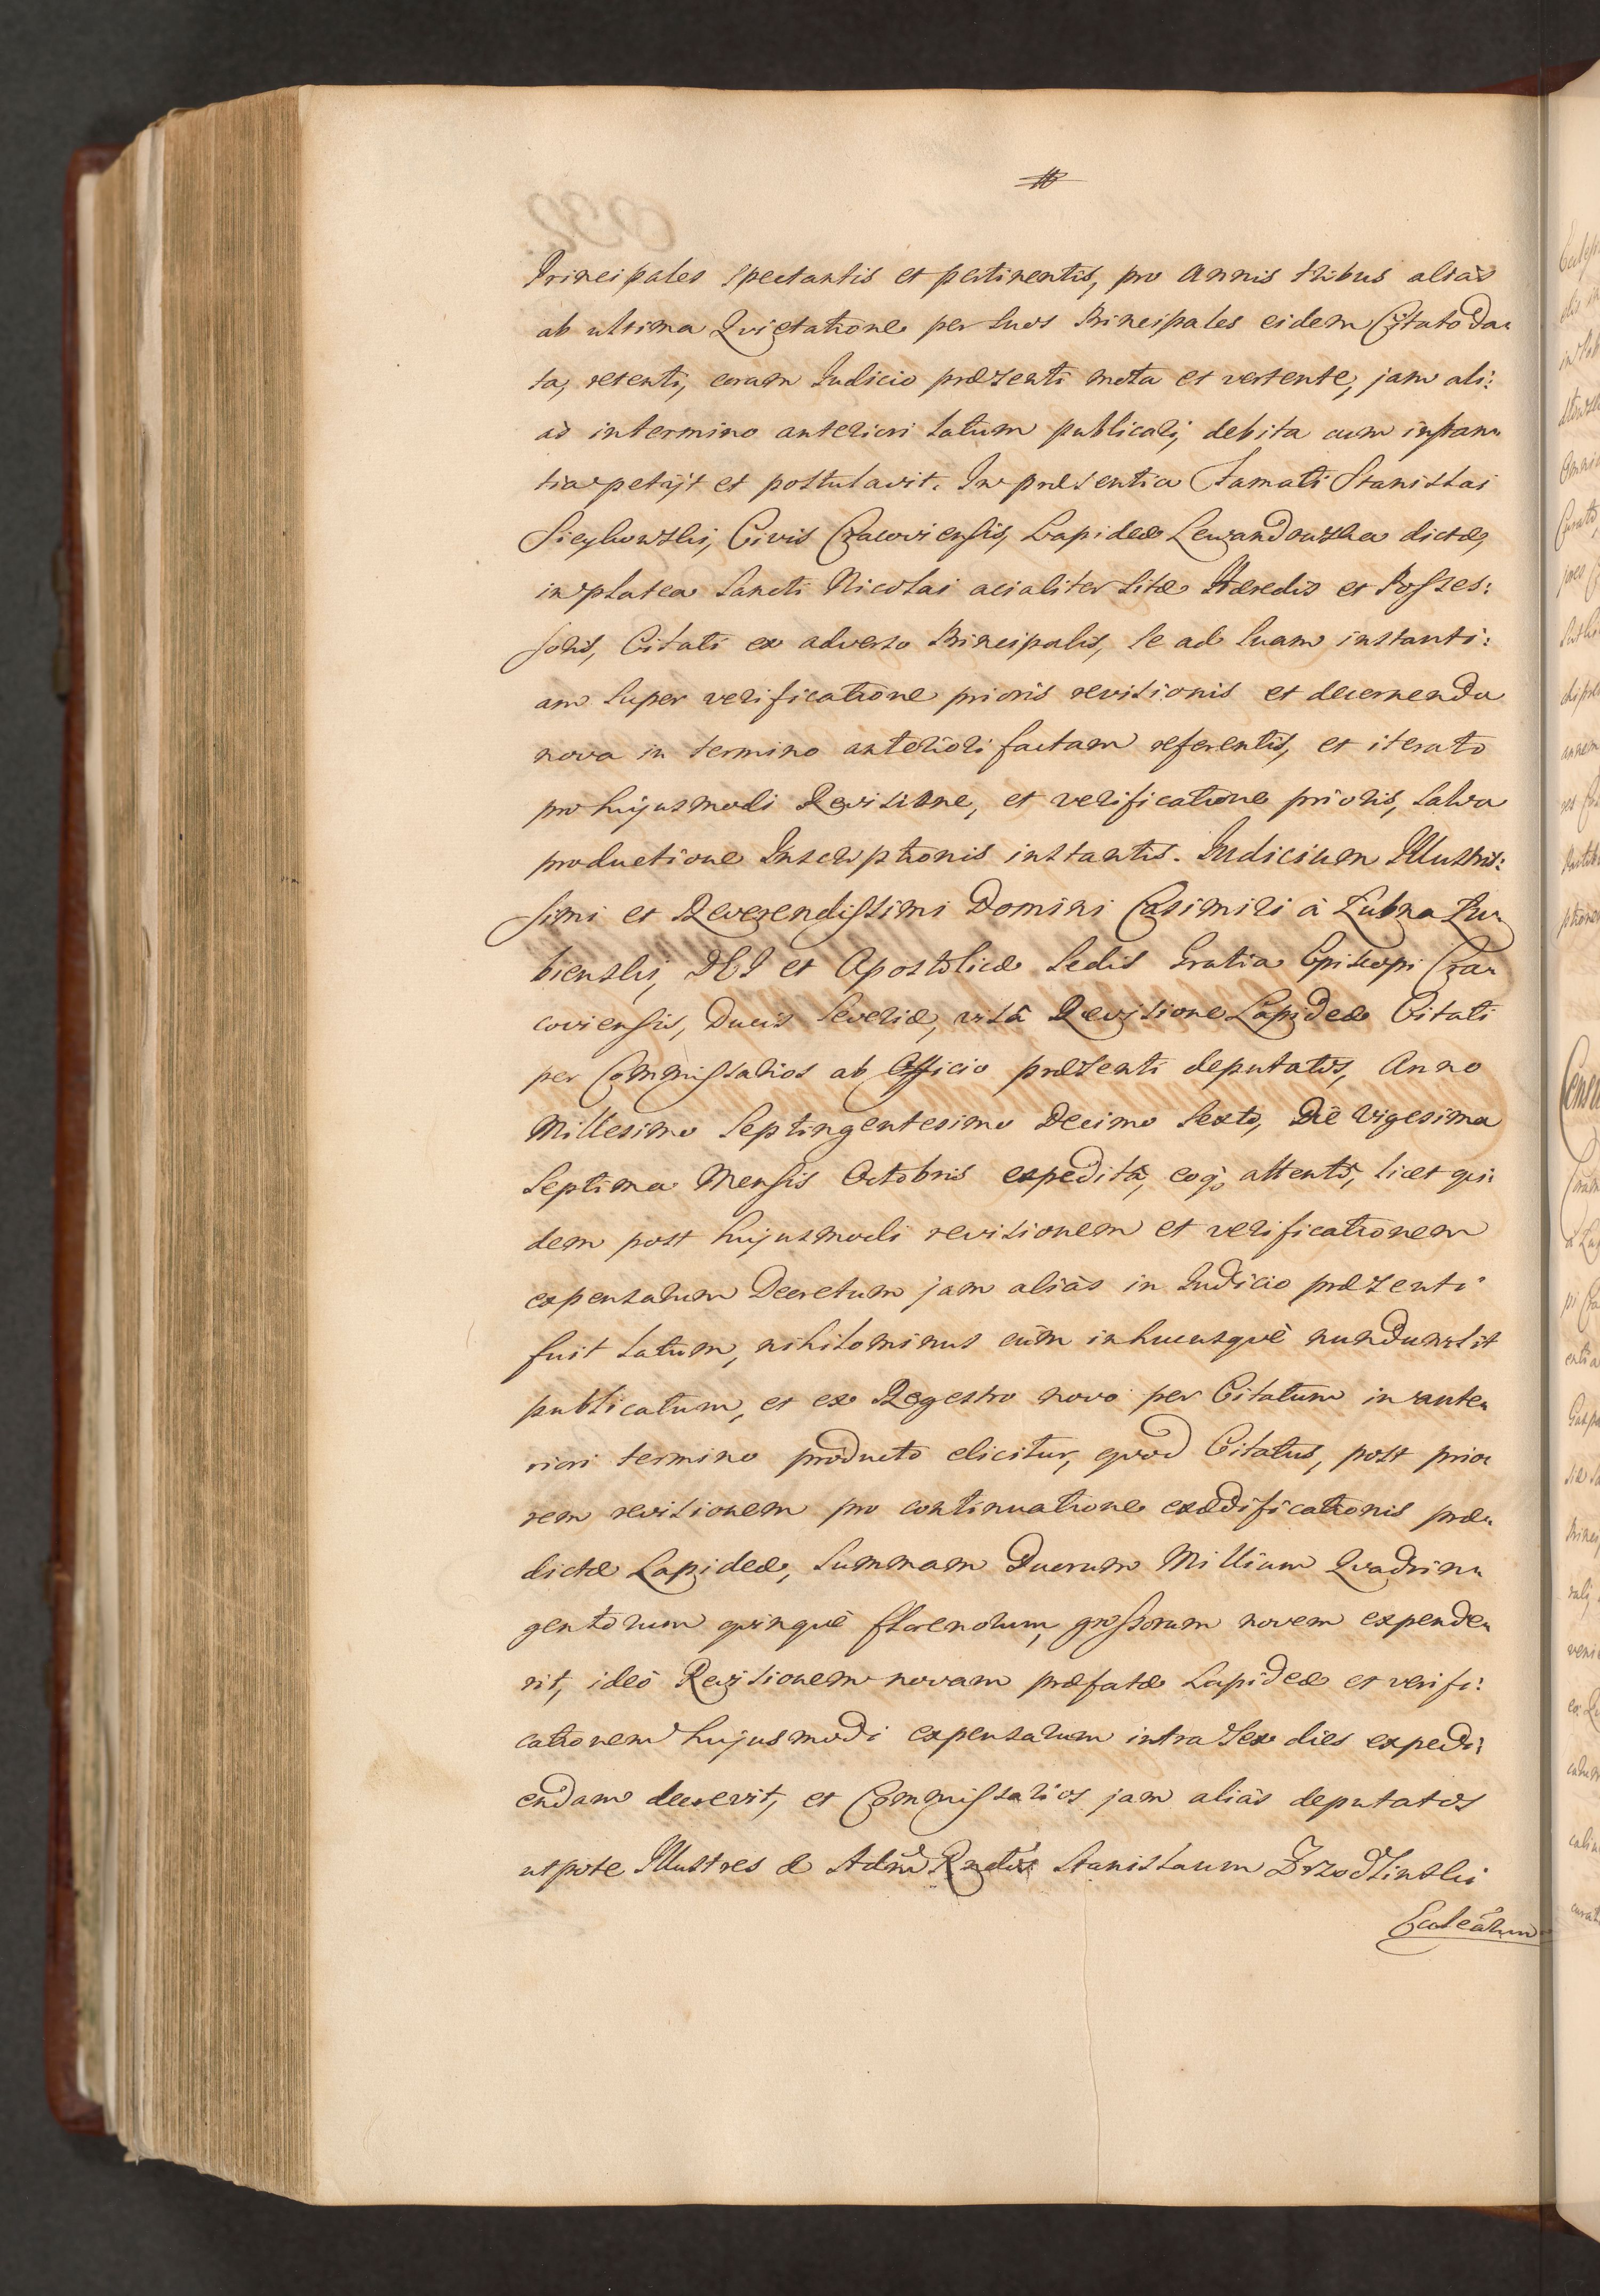 Principales spectantis et pertinentis, pro Annis tribus aliàs
ab ultima Quietatione per suos Principales eidem Citato da„
ta, retenti, coram Judicio præsenti mota et vertente, jam ali:
às in termino anteriori latum publicari, debita cum instan„
tia petijt et postulavit. In præsentia Famati Stanislai
Civis Cracoviensis, Lapideæ Lewandowska dictæ,
in platea Sancti Nicolai acialiter sitæ Hæredis et Posses:
soris, Citati ex adverso Principalis, se ad suam instanti:
am super verificatione prioris revisionis et decernenda
nova in termino anteriori factam referentis, et iterato
pro hujusmodi Revisione, et verificatione prioris, salva
productione Inscriptionis instantis. Judicium Illustris:
simi et Reverendissimi Domini Casimiri à Łubna Łu„
bienski, DEI et Apostolicæ Sedis Gratia Episcopi Cra„
coviensis, Ducis Severiæ, visâ Revisione Lapideæ Citati
per Commissarios ab Officio præsenti deputatos, Anno
Millesimo Septingentesimo Decimo Sexto, Die Vigesima
Septima Mensis Octobris expeditâ, eoq; attentô, licet qui:
dem post hujusmodi revisionem et verificationem
expensarum Decretum jam aliàs in Judicio præsenti
fuit latum, nihilominus cùm inhucusquè nundum sit
publicatum, et ex Regestro novo per Citatum in ante„
riori termino producto elicitur, quod Citatus, post prio„
rem revisionem pro continuatione exædificationis præ„
dictæ Lapideæ, Summam Duorum Millium Quadrin„
gentorum quinquè florenorum, grossorum novem expende„
rit, ideò Revisionem novam præfatæ Lapideæ et verifi:
cationem hujusmodi expensarum intra Sex dies expedi:
endam decrevit, et Commissarios jam aliàs deputatos
utpote Illustres & Adm̄ Rndos Stanislaum